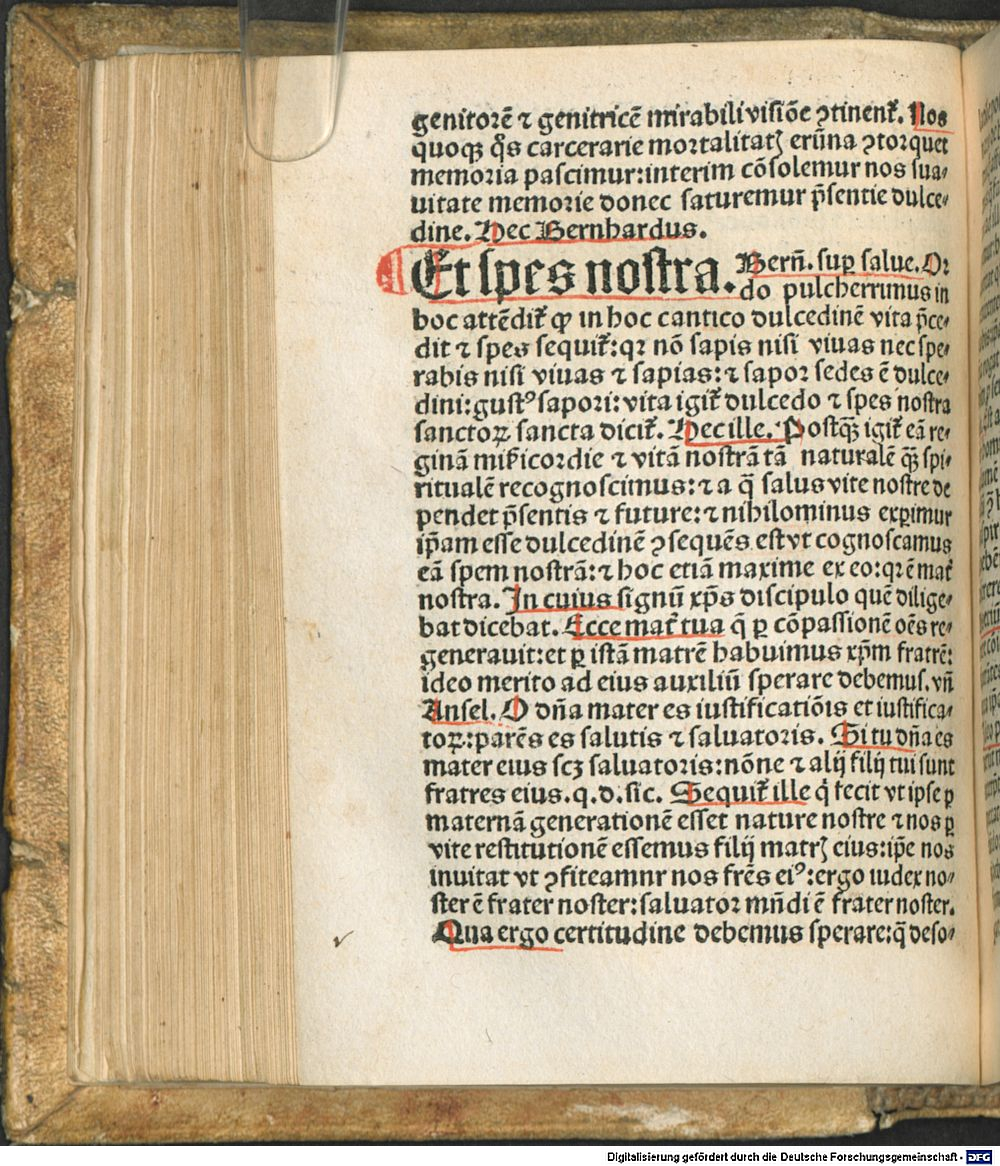 genitorē ⁊ genitricē mirabili visiōe ꝯtinent᷑. Nos
quoqꝫ q̊s carcerarie mortalitatꝭ erūna ꝯtorquet
memoria pascimur:interim cōsolemur nos sua⸗
uitate memorie donec saturemur p̄sentie dulce⸗
dine. Hec Bernhardus.
Et spes nostra. Berñ. suꝑ salue. Or
do pulcherrimus in
hoc attēdit᷑ ꝙ in hoc cantico dulcedinē vita p̄ce⸗
dit ⁊ spes sequit᷑:qꝛ nō sapis nisi viuas nec spe⸗
rabis nisi viuas ⁊ sapias:⁊ sapor sedes ē dulce⸗
dini:gustꝰ sapori:vita igit᷑ dulcedo ⁊ spes nostra
sanctoꝝ sancta dicit᷑. Hec ille. Postqꝫ̄ igit᷑ eā re⸗
ginā mīcordie ⁊ vitā nostrā tā naturalē qꝫ̄ spi⸗
ritualē recognoscimus:⁊ a q̄ salus vite nostre de
pendet p̄sentis ⁊ future:⁊ nihilominus exꝑimur
ip̄am esse dulcedinē ꝯsequēs est vt cognoscamus
eā spem nostrā:⁊ hoc etiā maxime ex eo:qꝛ ē mat᷑
nostra. In cuius signū xp̄s discipulo quē dilige⸗
bat dicebat. Ecce mat᷑ tua q̄ ꝑ cōpassionē oēs re⸗
generauit:et ꝑ istā matrē habuimus xp̄m fratrē:
ideo merito ad eius auxiliū sperare debemus. vñ
Ansel. O dña mater es iustificatiōis et iustifica⸗
toꝝ:parēs es salutis ⁊ saluatoris. Si tu dña es
mater eius scꝫ saluatoris:nōne ⁊ alij filij tui sunt
fratres eius. q. d. sic. Sequit᷑ ille q̇ fecit vt ipse ꝑ
maternā generationē esset nature nostre ⁊ nos ꝑ
vite restitutionē essemus filij matrꝭ eius:ip̄e nos
inuitat vt ꝯfiteamnr nos fr̄es eiꝰ:ergo iudex no⸗
ster ē frater noster:saluator mūdi ē frater noster.
Qua ergo certitudine debemus sperare:q̄ deso⸗
Digitalisierung gefördert durch die Deutsche Forschungsgemeinschaft - DFG